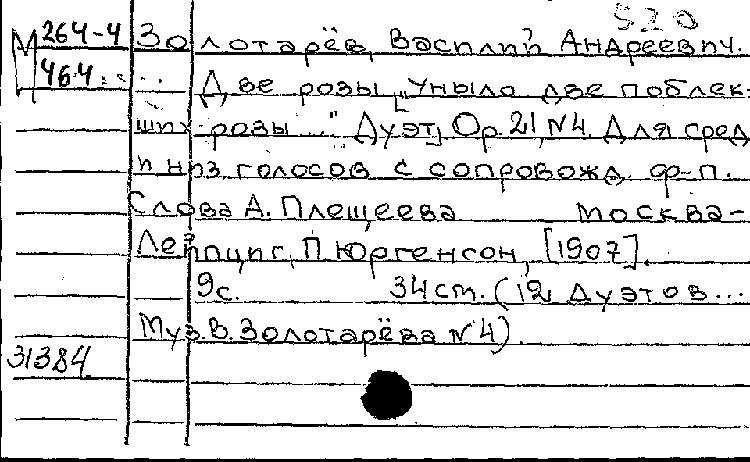 520
М 264-4 Золотарёв, Василий Андреевич.
464 Две розы „Уныло две поблек-
ших розы..." [Дуэт] Ор. 21, №4. Для сред
и низ голосов с сопровожд ф-п.
Слова А. Плещеева Москва-
Лейпциг, П Юргенсон, [1907].
9с. 34 см. (12 Дуэтов...
Муз. В. Золотарёва №4).
31384